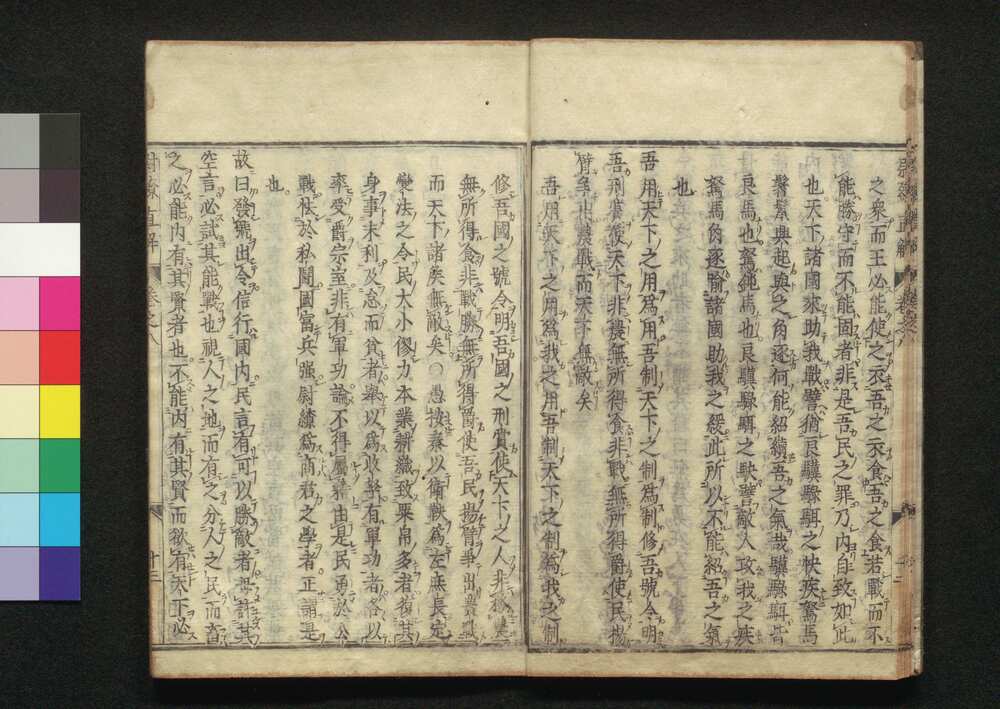 之衆而王必能使之衣吾之衣食吾之食若戰而不
能勝守而不能固者非是吾民之罪乃內自致如此
也天下諸國來助我戰譬猶良驥騄駬之快疾駑馬
鬐鬣興起與之角逐何能紹續吾之氣哉驥騄駬皆
良馬也駑鈍馬也良驥騄駬之駃譬敵人攻我之疾
駑馬角逐喻諸國助我之緩此所以不能紹吾之氣
也
吾用天下之用爲用吾制天下之制爲制修吾號令明
吾刑賞使天下非農無所得食非戰無所得爵使民揚
臂爭出農戰而天下無敵矣
吾用天下之用爲我之用吾制天下之制爲我之制
修吾國之號令明吾國之刑賞使天下之人非務農
無所得食非戰勝無所得爵使吾民揚臂爭出農戰
而天下諸矦無敵矣○愚按秦以衛鞅爲左庶長定
變法之令民大小僇力本業耕織致粟帛多者復其
身事末利及怠而貧者舉以爲收孥有軍功者各以
率受爵宗室非有軍功論不得屬籍由是民勇於公
戰怯於私鬭國富兵强尉繚爲商君之學者正謂是
也
故曰發號出令信行國內民言有可以勝敵者毋許其
空言必試其能戰也視人之地而有之分人之民而畜
之必能內有其賢者也不能內有其賢而欲有天下必
尉繚直解
卷之八
十三